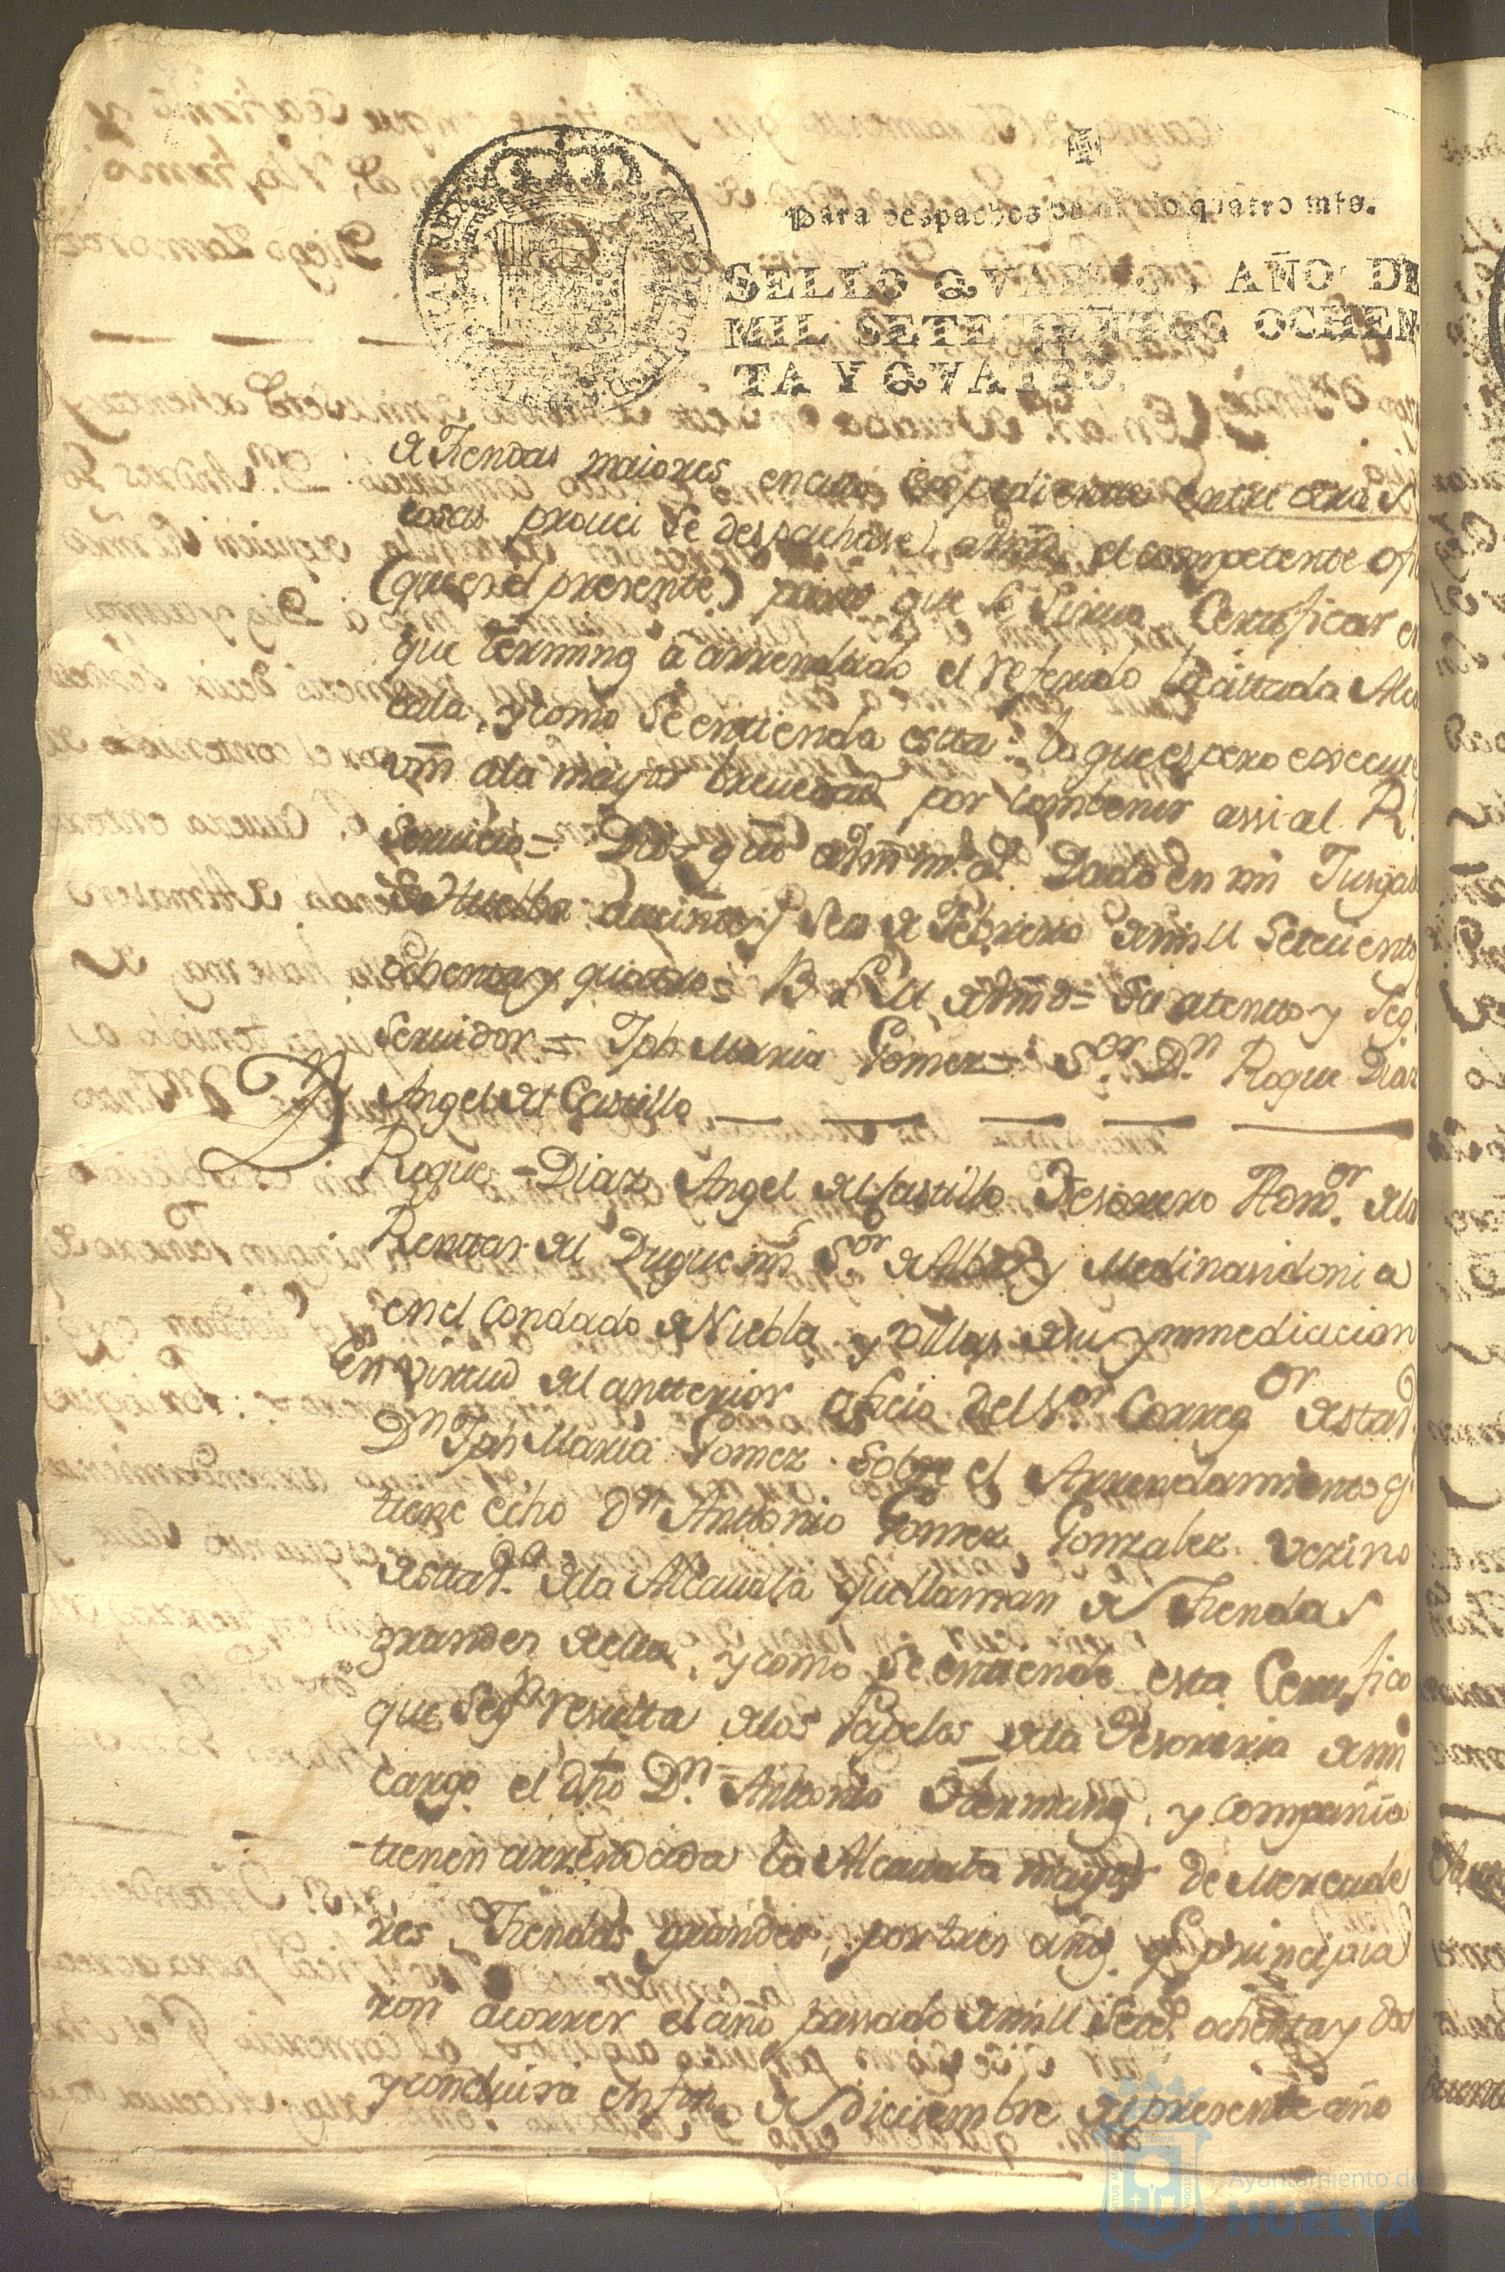 Para despachos de oficio quatro mrs.
SELLO QVARTO, AÑO DE
MIL SETECIENTOS OCHEN
TA Y QVATRO.
de Tiendas maiores en cuio expediente entre otras
cosas proueí se despachase a Vm el competente ofi
(que es el presente) para que se sirua Certificar en
que termino à arrendado el referido la citada Alca
cala, y como se entienda esta: lo que espero execute
Vm a la mayor breuedad por combenir assi al Rl
Seruicio = Dios gue a Vm ms as. Dado en mi Jusgado
de Huelba a veinte y seis de Febrero de mill setecientos
ochenta y quatro = B L M de Vmd = Su atento y Seg
Seruidor = Jph Maria Gomez = Sor Dn Roque Diaz
Angel del Castillo
Dn Roque Diaz Angel del Castillo Tesorero Admor de las
Rentas del Duque mi Sor de Alba y Medinasidonia
en el Condado de Niebla y Villas de su ynmediacion
En virtud del antterior oficio del Sor Corregor de sta
Dn Jph Maria Gomez sobre el Arrendamiento q
tiene echo Dn Anttonio Gomez Gonzalez vezino
de sta Va de la Alcauala que llaman de Tiendas
grandes de ella, y como se entiende esta Certifico
que segn resulta de los Papeles de la Tesoreria de mi
cargo el dho Dn Antonio Hermano, y compañia
tienen arrendada la Alcauala mayor de Mercade
res, Tiendas grandes, por tres años q principia
ron a correr el año passado de mill setes ochenta y dos
y concluira en fin de Diciembre del presente año
Ayuntamiento de
HUELVA